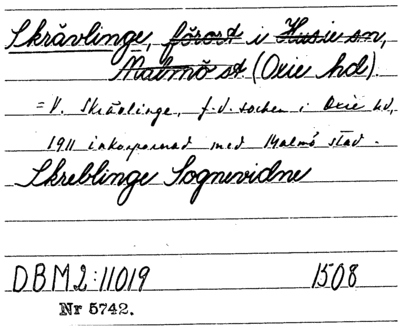 Skrävlinge, förort i Husie sn,
Malmö st (Oxie hd).
= V. Skrävlinge, f.d. socken i Oxie hd,
1911 inkorporerad med Malmö stad.
Skreblinge Sognevidne
DBM2:11019 1508
Nr 5742.